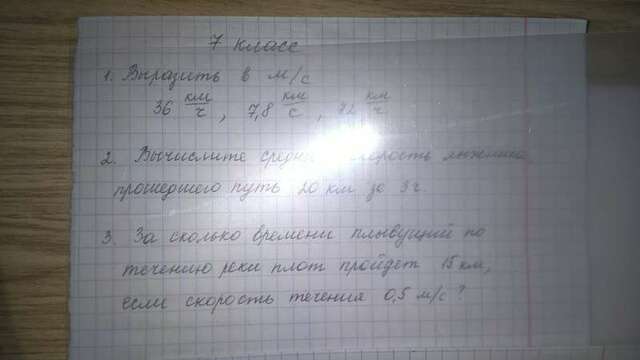 7 класс
1. Выразить в м/с
36 км/ч, 7,8 км/с, км/ч
2. Вычислите скорость лыжника
прошедшего путь 20 км за 3 ч.
3. За сколько времени плывущий по
течению реки плот пройдет 15 км,
если скорость течения 0,5 м/с?